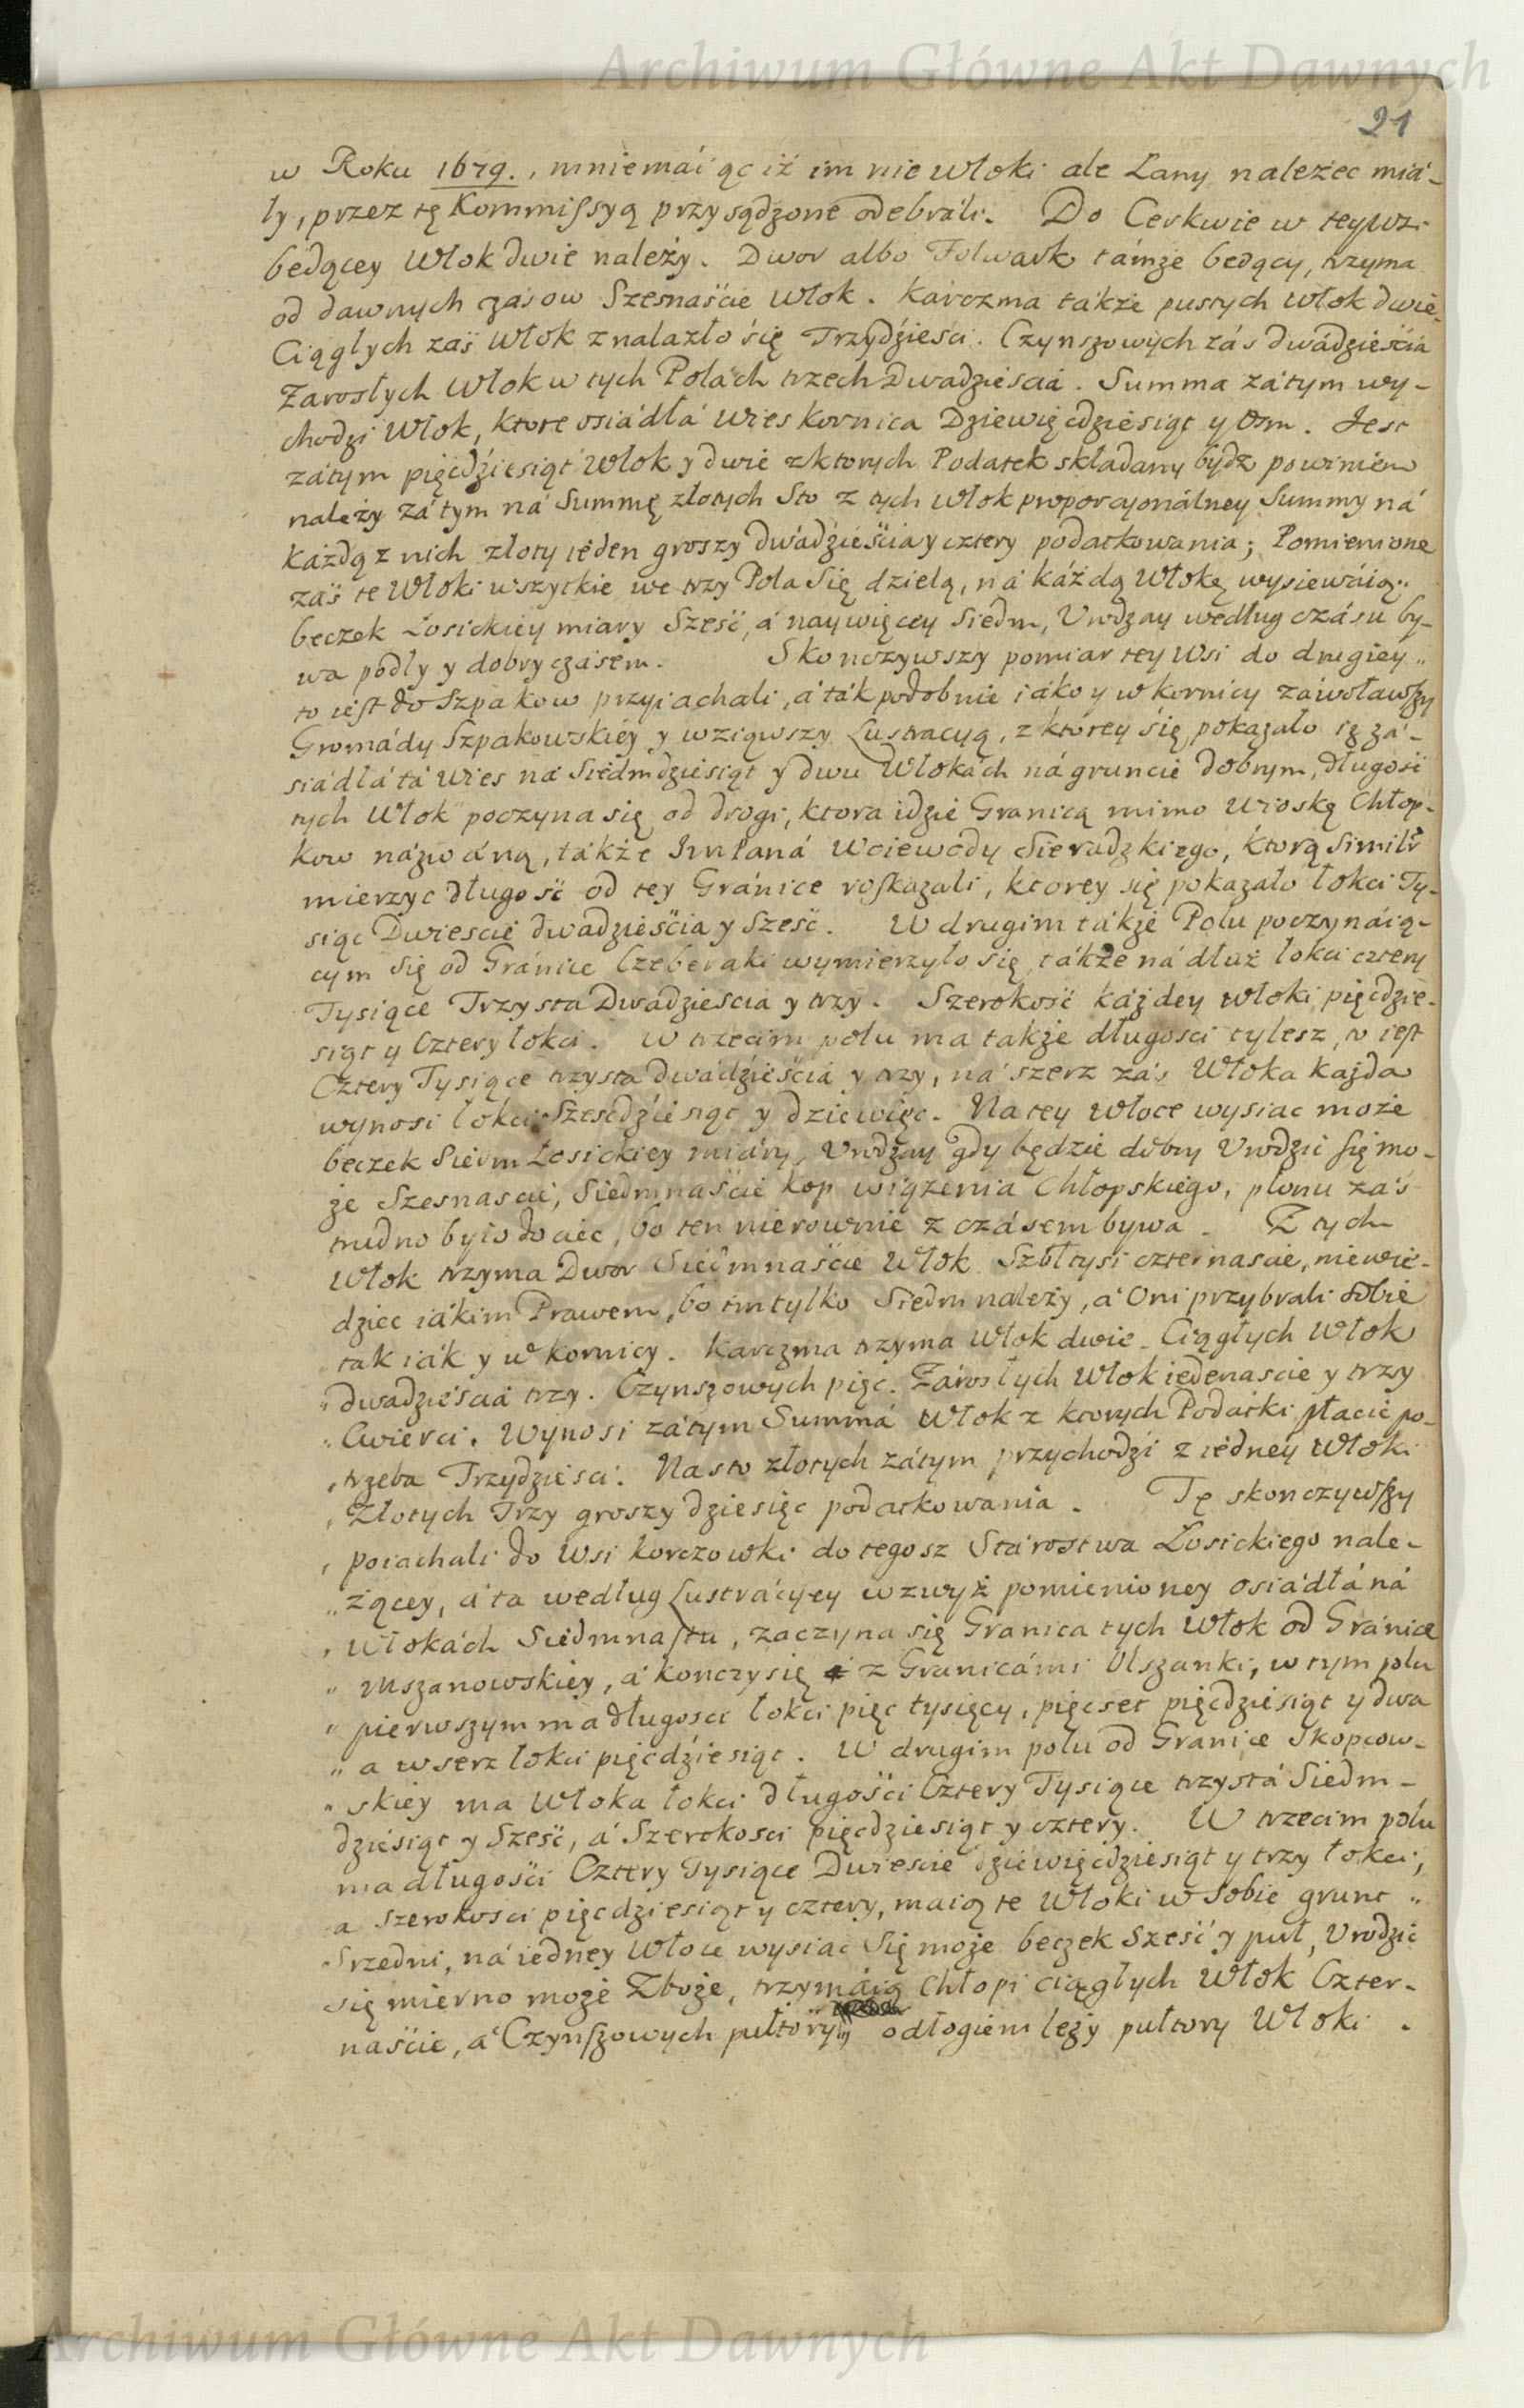 Archiwum Główne Akt Dawnych
21
w Roku 1679., mniemáiąc iż im nie Włoki ale Łany należec miá-
ły, przez tę Kommissyą przysądzone odebráli. Do Cerkwie w tey wsi
będącey Włok dwie należy. Dwor albo Folwark támże będący, trzyma
od dawnych czásow Szesnaście Włok. Kárczma także pustych Włok dwie.
Ciągłych zaś Włok znalazło się Trzydźiesci. Czynszowych zás dwádzieścia
Zarosłych Włok w tych Polách trzech Dwadzieścia. Summa zátym wy-
chodzi Włok, ktore osiádłá Wies Kornica Dziewięcdziesiąt y Osm. Jest
zátym pięcdźiesiąt Włok y dwie z ktorych Podatek składany bydz powinien
należy zátym ná Summę złotych Sto z tych Włok proporcyonálney Summy ná
káżdą z nich złoty ieden groszy dwádzieścia y cztery podatkowania; Pomienione
záś te Włoki wszytkie we trzy Pola się dzielą, ná káżdą Włokę wysiewáią
beczek Łosickiey miary Sześć, á naywięcey Siedm, Urodzay według czásu by-
wa podły y dobry czásem. Skonczywszy pomiar tey Wsi do drugiey
to iest do Szpakow przyiachali, á ták podobnie iáko y w Kornicy záwoławszy
Gromády Szpakowskiey y wziąwszy Lustracyą, z ktorey się pokazało iż zá-
siádłá tá Wies ná Siedmdziesiąt y dwu Włokách ná gruncie dobrym, długość
tych Włok poczyna się od drogi, ktora idzie Granicą mimo Wioskę Chłop-
kow názwáną, także Jmłaná Woiewody Sieradzkiego, ktorą Similr
mierzyc długość od tey Gránice roskazali, ktorey się pokazało łokci Ty-
siąc Dwiescie dwadzieścia y Sześć. W drugim tákże Polu poczynáią-
cym się od Gránice Czeberaki wymierzyło się tákże ná dłuż łokci cztery
Tysiące Trzysta Dwadzieścia y trzy. Szerokość káżdey Włoki pięcdzie-
siąt y Cztery łokci. W trzecim polu ma tákże długosci tylesz, to iest
Cztery Tysiące trzysta dwádzieścia y trzy, ná szerz zás Włoka każda
wynosi łokci Szescdźiesiąt y dziewięc. Na tey Włoce wysiac może
beczek Siedm Łosickiey miáry, Urodzay gdy będzie dobry Urodzic się mo-
że Szesnascie, Siedmnaście kop wiązenia Chłopskiego, plonu záś
trudno było dociec, bo ten nierownie z czásem bywa. Z tych
Włok trzyma Dwor Siedmnaście Włok Szołtysi czternascie, niewie-
dziec iákim Prawem, bo im tylko Siedm należy, á Oni przybrali sobie
tak iák y w Kornicy. Karczma trzyma Włok dwie. Ciągłych Włok
dwadzieścia trzy. Czynszowych pięc. Zárosłych Włok iedenascie y trzy
Cwierci. Wynosi zátym Summá Włok z ktorych Podatki płacic po-
trzeba Trzydziesci. Na sto złotych zátym przychodzi z iedney Włoki
Złotych Trzy groszy dziesięc podatkowania. Tę skonczywszy
poiachali do Wsi Korczowki do tegosz Stárostwa Łosickiego nale-
żącey, á ta według Lustrácyey wzwyż pomienioney osiádłá ná
Włokách Siedmnastu, zaczyna się Granica tych Włok od Gránice
Mszanowskiey, á konczy się z Granicámi Olszanki, w tym polu
pierwszym ma długosci łokci pięc tysięcy, pięcset pięcdziesiąt y dwa
a wserz łokci pięcdźiesiąt. W drugim polu od Granice Skopcow-
skiey ma Włoka łokci długości Cztery Tysiące trzystá Siedm-
dziesiąt y Sześć, á Szerokosci pięcdziesiąt y cztery. W trzecim polu
ma długości Cztery Tysiące Dwiescie dziewięcdziesiąt y trzy łokci,
a szerokosci pięcdziesiąt y cztery, maią te Włoki w sobie grunt
Srzedni, ná iedney Włoce wysiac się może beczek Sześć y puł, Urodzic
się mierno może Zboże, trzymáią Chłopi ciągłych Włok Czter-
naście, á Czynszowych pułtory odłogiem leży pułtory Włoki.
Archiwum Główne Akt Dawnych